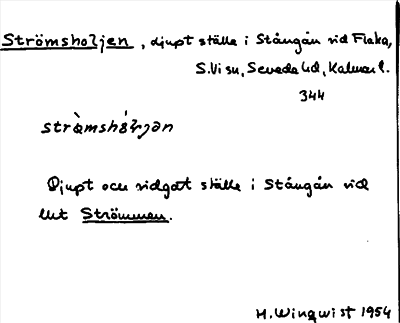 Strömsholjen, djupt ställe i Stångån vid Flaka,
S. Vi sn, Sevede hd, Kalmar l.
344
Djupt och vidgat ställe i Stångån vid
Strömmen.
H. Winqwist 1954